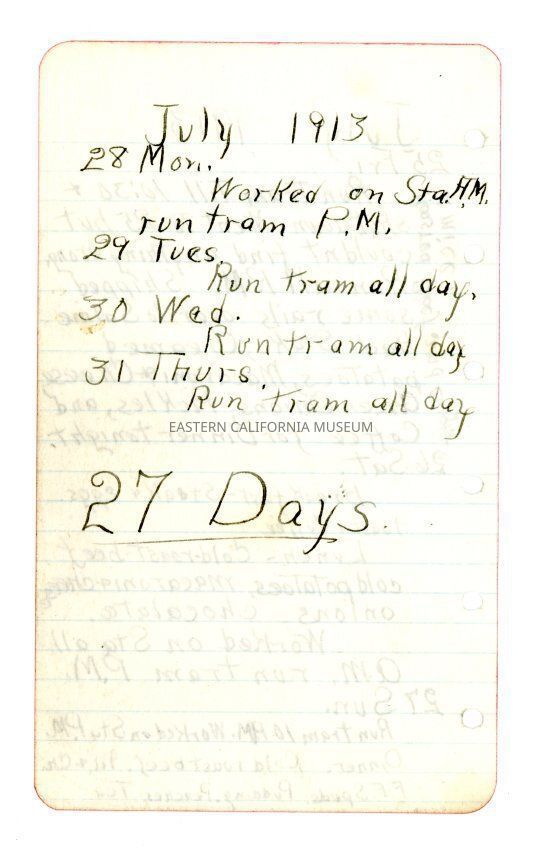 July 1913
28 Mon.
Worked on Sta. A.M.
run tram P.M.
29 Tues.
Run tram all day.
30 Wed.
Run tram all day
31 Thurs.
Run tram all day
EASTERN CALIFORNIA MUSEUM
27 Days.